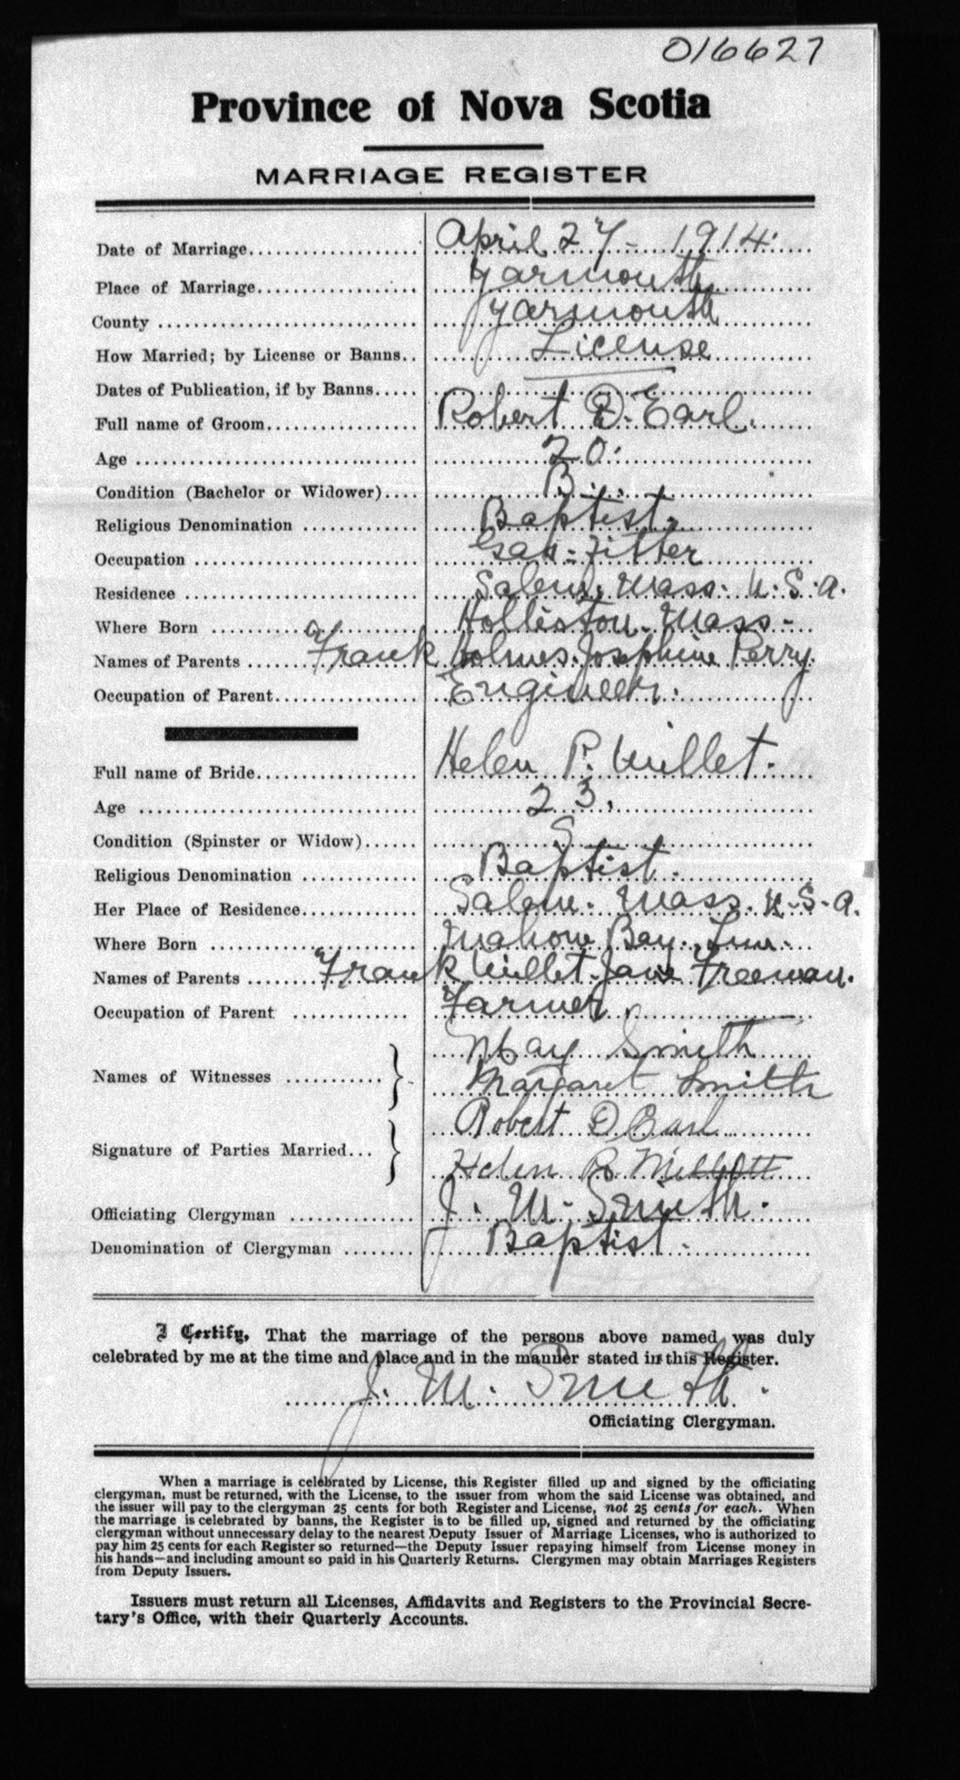 016627
Province of Nova Scotia
MARRIAGE REGISTER
Date of Marriage.................... April 27 - 1914.
Place of Marriage................... Yarmouth
County .............................. Yarmouth
How Married; by License or Banns.. License
Dates of Publication, if by Banns.....
Full name of Groom.................. Robert D. Earl.
Age ................................. 20.
Condition (Bachelor or Widower).... B.
Religious Denomination .............. Baptist.
Occupation .......................... Gas-fitter
Residence ........................... Salem, Mass. U.S.A.
Where Born .......................... Holliston. Mass.
Names of Parents ...... Frank Holmes. Josephine Perry.
Occupation of Parent................. Engineer.
Full name of Bride................... Helen P. Millet.
Age ................................. 23.
Condition (Spinster or Widow)...... S
Religious Denomination .............. Baptist.
Her Place of Residence.............. Salem. Mass. U.S.A.
Where Born .......................... Mahone Bay. Lun.
Names of Parents ...... Frank Millet. Jane Freeman.
Occupation of Parent .............. Farmer
May Smith
Names of Witnesses ............ } Margaret Smith
Robert D Earl
Signature of Parties Married... }
Helen P. Millett
Officiating Clergyman ............... J. M. Smith.
Denomination of Clergyman ........ Baptist.
I Certify, That the marriage of the persons above named was duly
celebrated by me at the time and place and in the manner stated in this Register.
J. M. Smith.
Officiating Clergyman.
When a marriage is celebrated by License, this Register filled up and signed by the officiating
clergyman, must be returned, with the License, to the issuer from whom the said License was obtained, and
the issuer will pay to the clergyman 25 cents for both Register and License, not 25 cents for each. When
the marriage is celebrated by banns, the Register is to be filled up, signed and returned by the officiating
clergyman without unnecessary delay to the nearest Deputy Issuer of Marriage Licenses, who is authorized to
pay him 25 cents for each Register so returned—the Deputy Issuer repaying himself from License money in
his hands—and including amount so paid in his Quarterly Returns. Clergymen may obtain Marriages Registers
from Deputy Issuers.
Issuers must return all Licenses, Affidavits and Registers to the Provincial Secre-
tary's Office, with their Quarterly Accounts.